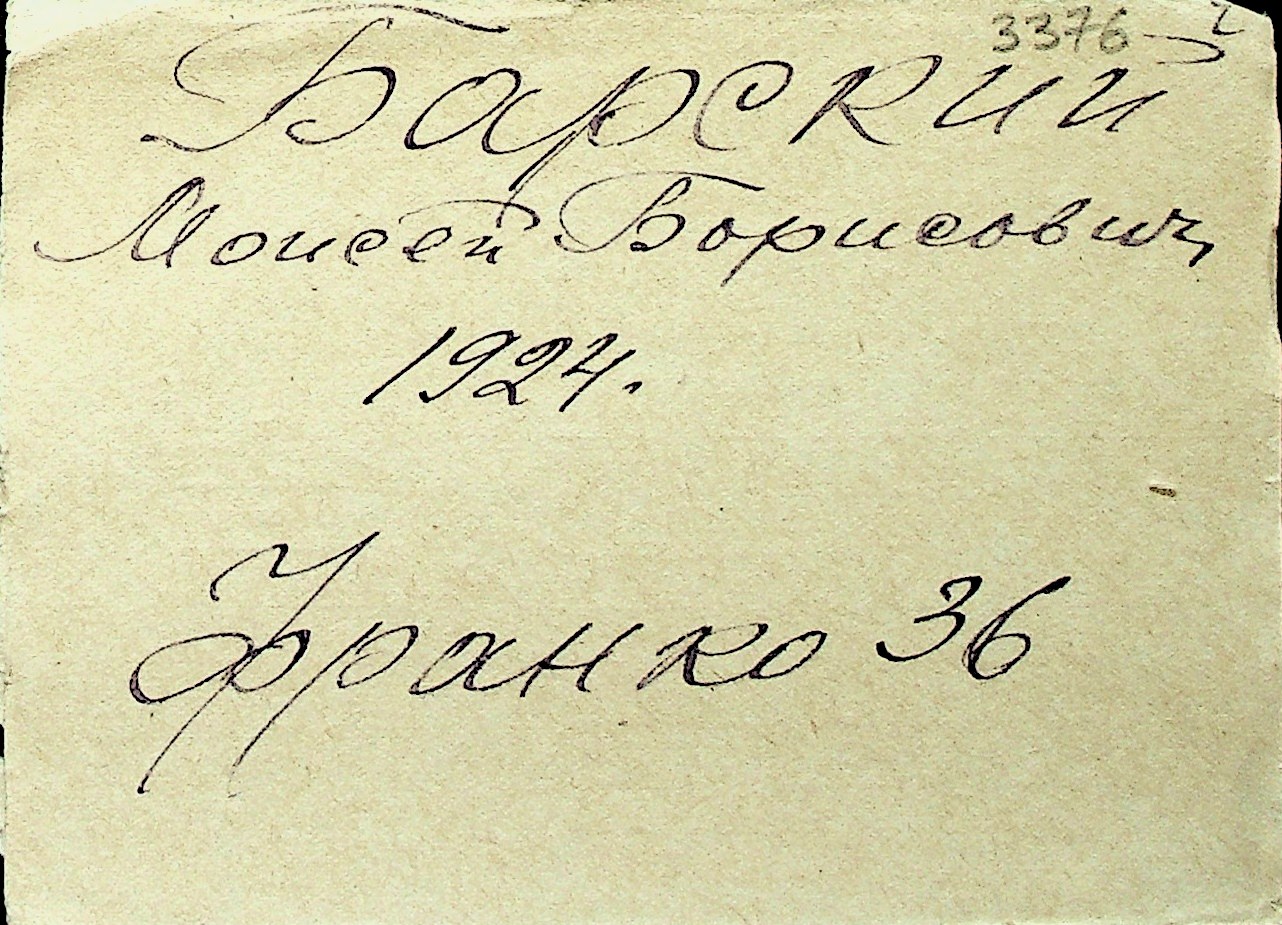 3376
Барский
Моисей Борисович
1924.
Франко 36